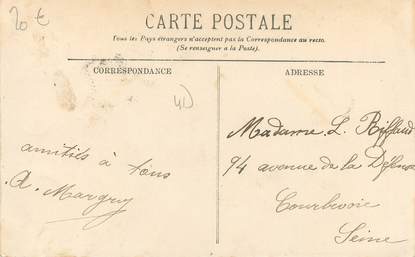 20 €
CARTE POSTALE
Tous les Pays étrangers n'acceptent pas la Correspondance au recto.
(Se renseigner à la Poste).
CORRESPONDANCE
ADRESSE
amitiés à tous
A. Margry
Madame L. Riffaud
94 avenue de la Défense
Courbevoie
Seine